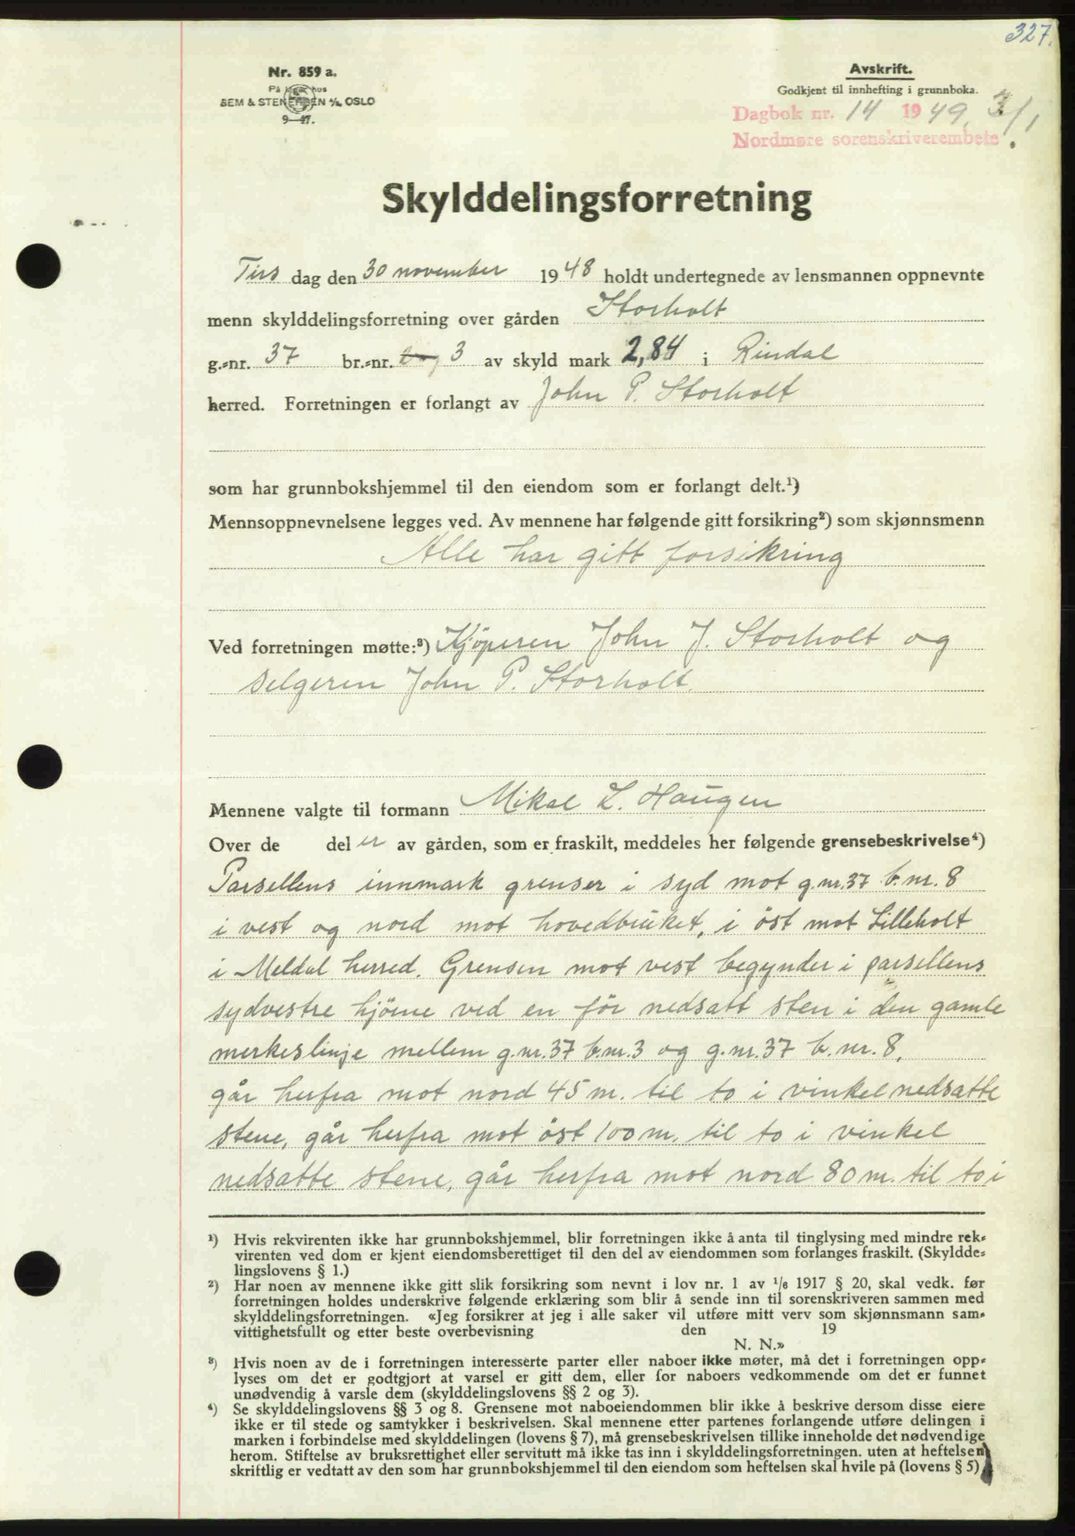 327.
Nr. 859 a.
På lager hos
SEM & STENERSEN A/S, OSLO
9—47.
Avskrift.
Godkjent til innhefting i grunnboka.
Dagbok nr. 14 1949, 3/1
Nordmøre sorenskriverembete.
Skylddelingsforretning
Tirs dag den 30 november 1948 holdt undertegnede av lensmannen oppnevnte
menn skylddelingsforretning over gården Storholt
g.-nr. 37 br.-nr. 3 av skyld mark 2,84 i Rindal
herred. Forretningen er forlangt av John P. Storholt
som har grunnbokshjemmel til den eiendom som er forlangt delt.¹)
Mennsoppnevnelsene legges ved. Av mennene har følgende gitt forsikring²) som skjønnsmenn
Alle har gitt forsikring
Ved forretningen møtte:³) Kjöperen John J. Storholt og
selgeren John P. Storholt.
Mennene valgte til formann Mikal L. Haugen
Over de del er av gården, som er fraskilt, meddeles her følgende grensebeskrivelse⁴)
Parsellens innmark grenser i syd mot g.nr. 37 b.nr. 8
i vest og nord mot hovedbruket, i öst mot Lilleholt
i Meldal herred. Grensen mot vest begynder i parsellens
sydvestre hjörne ved en för nedsatt sten i den gamle
merkeslinje mellem g.nr. 37 b.nr. 3 og g.nr. 37 b.nr. 8,
går herfra mot nord 45 m. til to i vinkel nedsatte
stene, går herfra mot öst 100 m. til to i vinkel
nedsatte stene, går herfra mot nord 80 m. til to i
¹) Hvis rekvirenten ikke har grunnbokshjemmel, blir forretningen ikke å anta til tinglysing med mindre rek-
virenten ved dom er kjent eiendomsberettiget til den del av eiendommen som forlanges fraskilt. (Skyldde-
lingslovens § 1.)
²) Har noen av mennene ikke gitt slik forsikring som nevnt i lov nr. 1 av 1/6 1917 § 20, skal vedk. før
forretningen holdes underskrive følgende erklæring som blir å sende inn til sorenskriveren sammen med
skylddelingsforretningen. «Jeg forsikrer at jeg i alle saker vil utføre mitt verv som skjønnsmann sam-
vittighetsfullt og etter beste overbevisning den 19
N. N.»
³) Hvis noen av de i forretningen interesserte parter eller naboer ikke møter, må det i forretningen opp-
lyses om det er godtgjort at varsel er gitt dem, eller for naboers vedkommende om det er funnet
unødvendig å varsle dem (skylddelingslovens §§ 2 og 3).
⁴) Se skylddelingslovens §§ 3 og 8. Grensene mot naboeiendommen blir ikke å beskrive dersom disse eiere
ikke er til stede og samtykker i beskrivelsen. Skal mennene etter partenes forlangende utføre delingen i
marken i forbindelse med skylddelingen (lovens § 7), må grensebeskrivelsen tillike inneholde det nødvendige
herom. Stiftelse av bruksrettighet eller servitutt må ikke tas inn i skylddelingsforretningen, uten at heftelsen
skriftlig er vedtatt av den som har grunnbokshjemmel til den eiendom som heftelsen skal hvile på (lovens § 5).